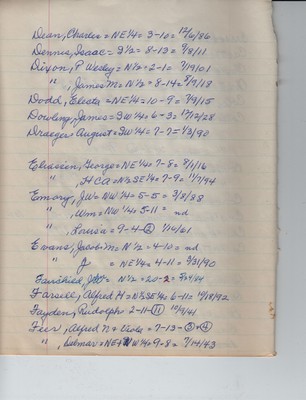 Dean, Charles = NE¼ = 3-10 = 12/6/86
Dennis, Isaac = S½ = 8-13 = 9/8/11
Dixon, P Wesley = N½ = 2-10 = 7/19/01
" , James M = N½ = 8-14 = 8/9/18
Dodd, Electa = NE¼ = 10-9 = 7/9/15
Dowling, James = SW¼ = 6-3 = 12/28
Draeger August = SW¼ = 7-7 = 1/3/90
Eliasien, George = NE¼ = 7-8 = 8/1/16
" , H C A = N½SE¼ = 7-9 = 11/7/94
Emory, JW = NW¼ = 5-5 = 3/8/88
" , Wm = NW¼ = 5-11 = nd
" , Louisa = 9-4-② 1/14/61
Evans, Jacob M = N½ = 4-10 = nd
" J = NE¼ = 4-11 = 3/31/90
N½ = 20-2 =
Farrell, Alfred H = N½SE¼ = 6-11 = 10/18/92
Fayden, Rudolph = 2-11-⑪ 10/9/41
Feer, Alfred N + Viola = 7-13-③+④
" , Delmar = NE+NW¼ = 9-8 = 7/14/43